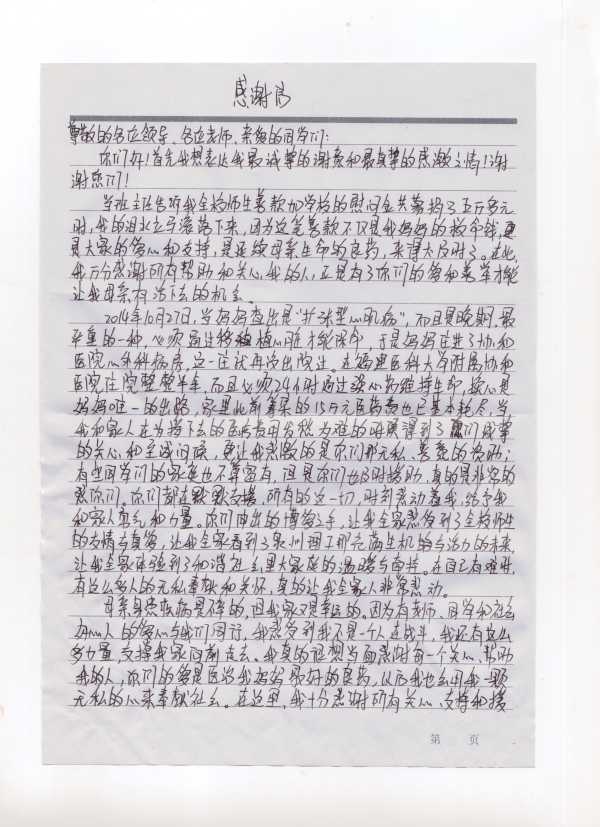 感谢信
尊敬的各位领导、各位老师、亲爱的同学们:
你们好!首先我想表达我最诚挚的谢意和最真挚的感激之情!谢
谢您们!
当班主任告诉我全校师生善款加学校的慰问金共募捐了五万多元
时,我的泪水立马滚落下来,因为这笔善款不仅是我妈妈的救命钱,更
是大家的爱心和支持,是延续母亲生命的良药,来得太及时了。在此,
我万分感谢所有帮助和关心我的人,正是有了你们的爱和善举才能
让我母亲有活下去的机会。
2014年10月27日,当妈妈查出是“扩张型心肌病”,而且是晚期,最
严重的一种,必须通过移植心脏才能活命,于是妈妈住进了协和
医院心外科病房,这一住就再没出院过。在福建医科大学附属协和
医院住院整整半年,而且必须24小时通过强心药维持生命,换心是
妈妈唯一的出路,家里此前筹集的15万元医药费也已基本耗尽,当
我和家人正为接下去的医疗费用发愁为难的时候得到了你们诚挚
的关心和至诚问候,更让我感激的是你们那无私、善意的资助;
有些同学们的家庭也不算富有,但是你们也及时援助,真的是非常的
感谢你们,你们都在默默支援,所有的这一切,时刻感动着我,给予我
和家人勇气和力量。你们伸出的博爱之手,让我全家感受到了全校师生
的友情与真爱,让我全家看到了泉州理工那充满生机的与活力的未来,
让我全家体验到了和谐社会里大家庭的温暖与支持。在自己有难时,
有这么多人的无私奉献和关怀,真的让我全家人非常感动。
母亲身患疾病是不幸的,但我家又是幸运的。因为有老师、同学和社会
人的爱心与我们同行,我感受到我不是一个人在战斗,我还有这么
多力量,支撑我家向前走去。我真的很想当面感谢每一个关心、帮助
我的人,你们的爱是医治我妈妈最好的良药,以后我也会用我一颗
无私的心来奉献社会。在这里,我十分感谢所有关心、支持和援
第 页